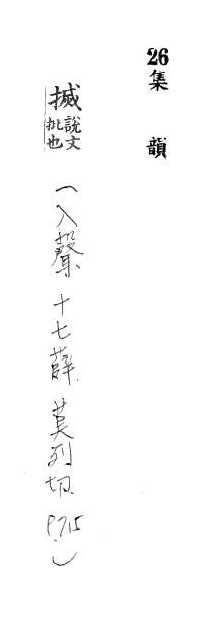 26 集韻
搣 說文 批也 (入聲 十七薛 莫列切 P.715)